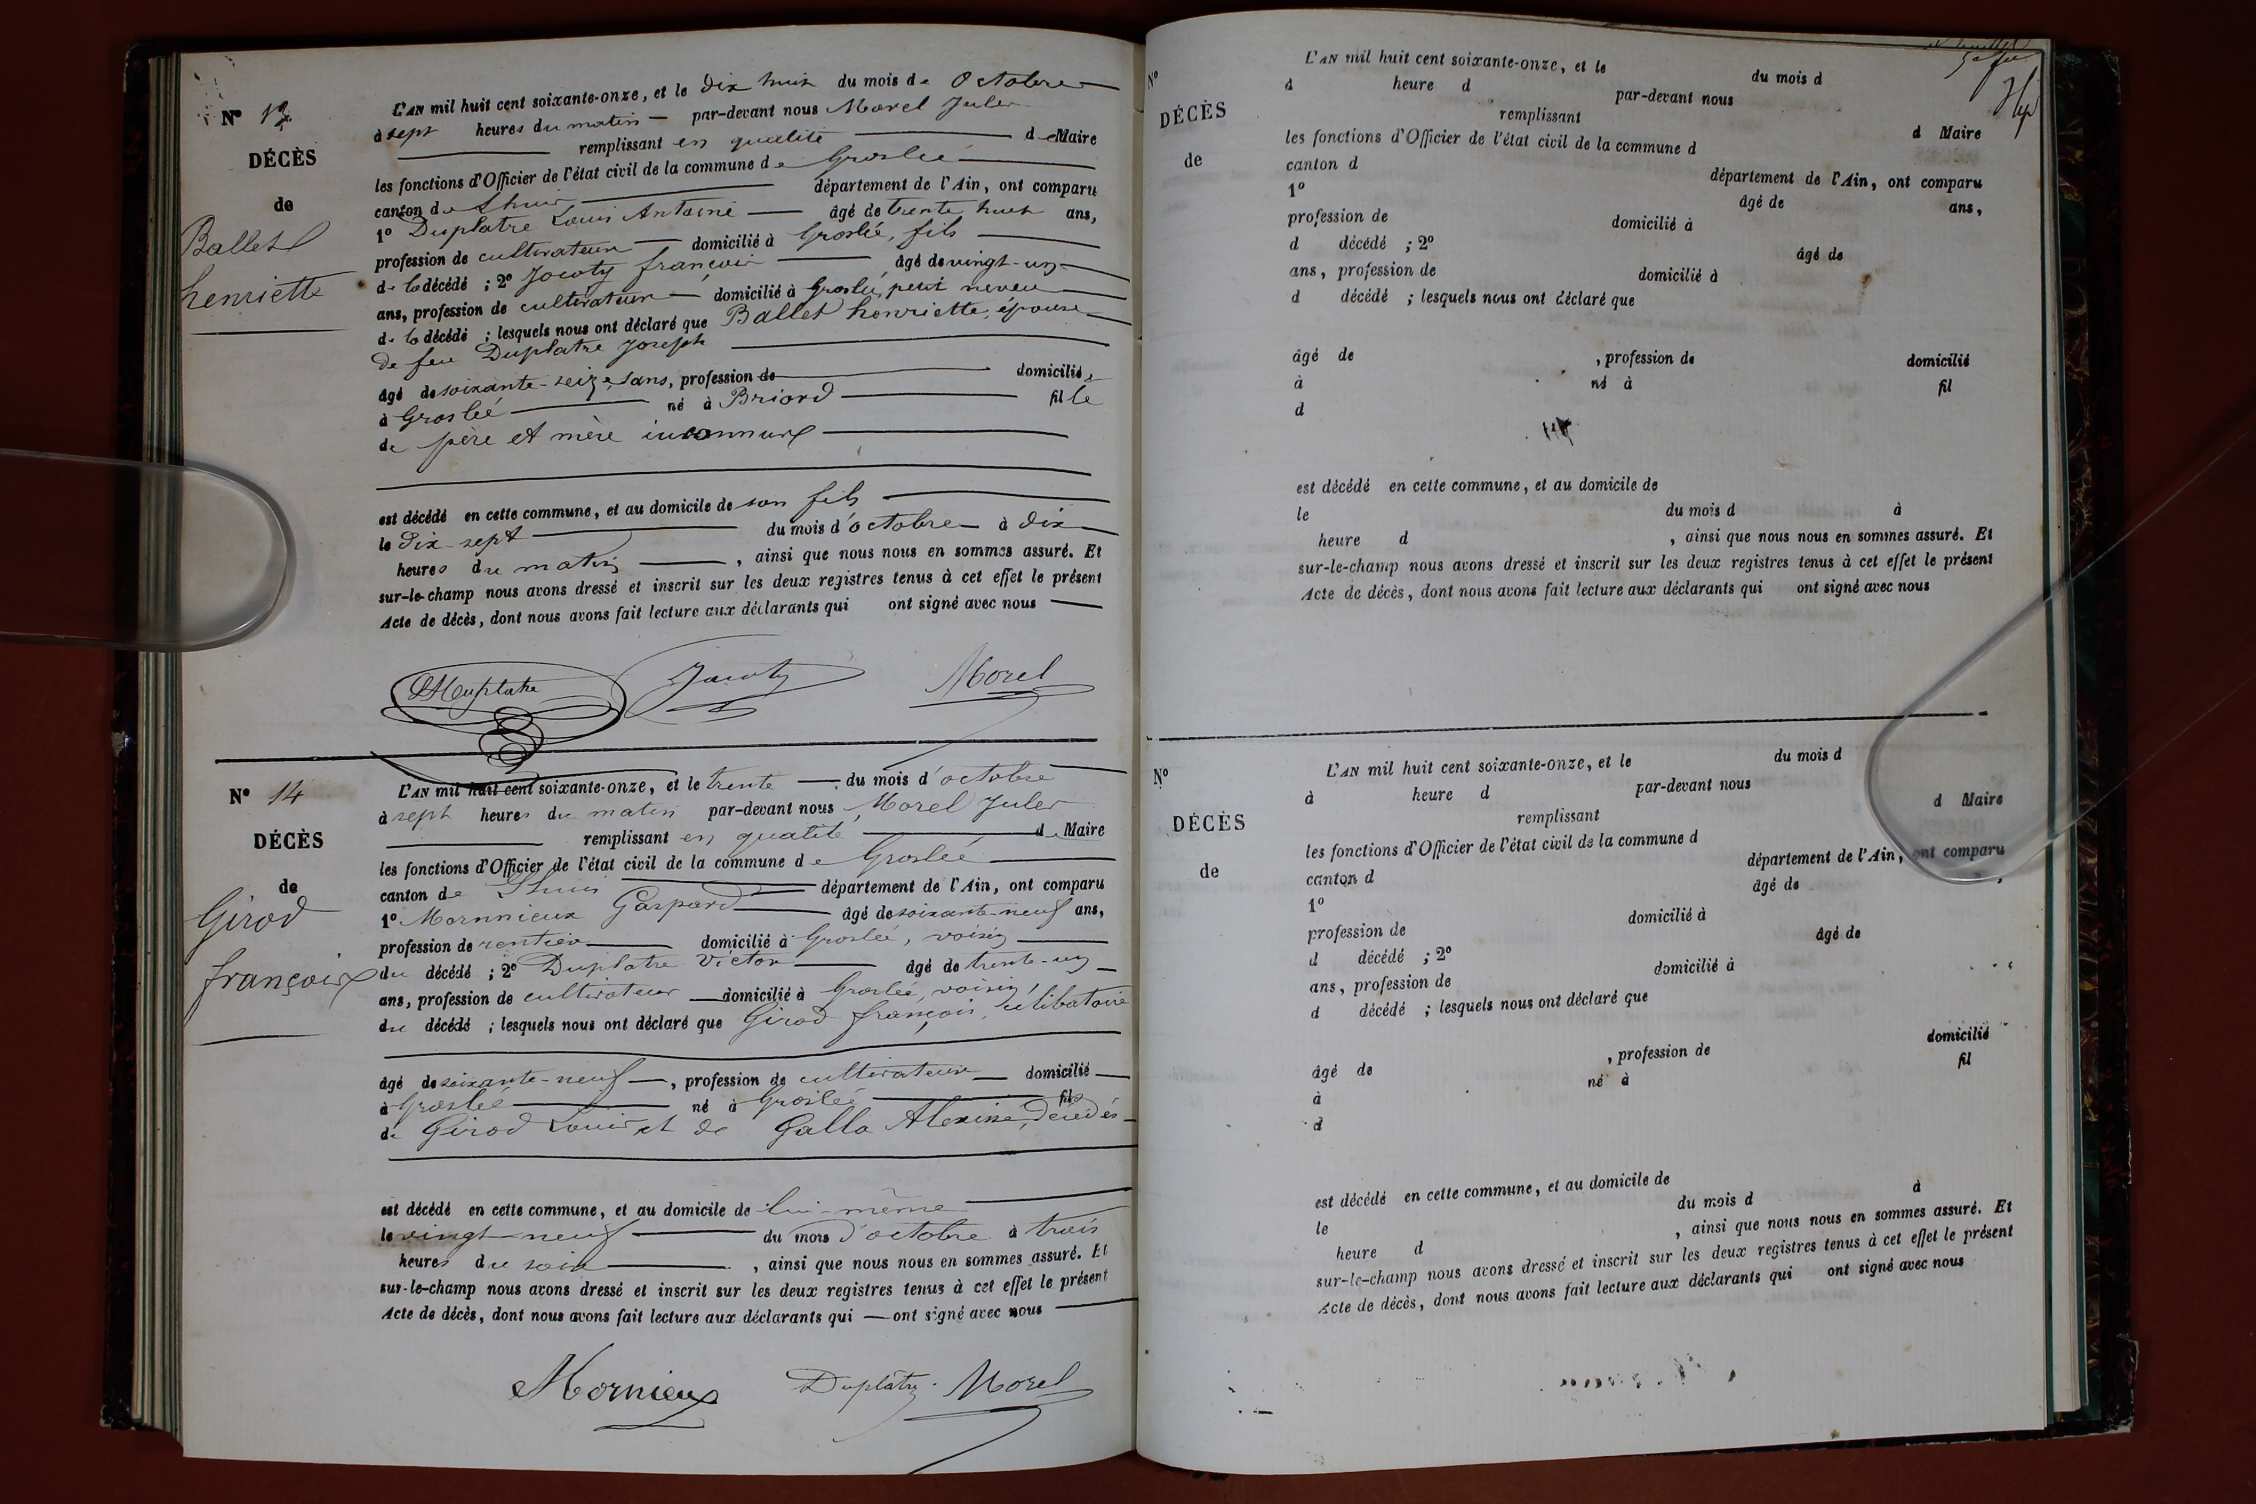 N° 13
DÉCÈS
de
Ballet
henriette
L'AN mil huit cent soixante-onze, et le dix huit du mois de Octobre
à sept heures du matin par-devant nous Morel Jules
remplissant en qualité de Maire
les fonctions d'Officier de l'état civil de la commune de Groslée
canton de Lhuis département de l'Ain, ont comparu
1° Duplatre Louis Antoine âgé de trente huit ans,
profession de cultivateur domicilié à Groslée, fils
de la décédé ; 2° Jocoty françois âgé de vingt-un
ans, profession de cultivateur domicilié à Groslée, petit neveu
de la décédé ; lesquels nous ont déclaré que Ballet henriette, épouse
de feu Duplatre Joseph
âgé de soixante-seize ans, profession de domicilié
à Groslée né à Briord fille
de père et mère inconnus
est décédé en cette commune, et au domicile de son fils
le dix-sept du mois d'octobre à dix
heures du matin , ainsi que nous nous en sommes assuré. Et
sur-le-champ nous avons dressé et inscrit sur les deux registres tenus à cet effet le présent
Acte de décès, dont nous avons fait lecture aux déclarants qui ont signé avec nous
Duplatre Jocoty Morel
N° 14
DÉCÈS
de
Girod
françois
L'AN mil huit cent soixante-onze, et le trente du mois d'octobre
à sept heures du matin par-devant nous Morel Jules
remplissant en qualité de Maire
les fonctions d'Officier de l'état civil de la commune de Groslée
canton de Lhuis département de l'Ain, ont comparu
1° Mornnieux Gaspard âgé de soixante-neuf ans,
profession de rentier domicilié à Groslée, voisin
du décédé ; 2° Duplatre Victor âgé de trente-un
ans, profession de cultivateur domicilié à Groslée, voisin
du décédé ; lesquels nous ont déclaré que Girod françois, célibataire
âgé de soixante-neuf , profession de cultivateur domicilié
à Groslée né à Groslée fils
de Girod Louis et de Galla Alexise, décédés
est décédé en cette commune, et au domicile de lui-même
le vingt-neuf du mois d'octobre à trois
heures du soir , ainsi que nous nous en sommes assuré. Et
sur-le-champ nous avons dressé et inscrit sur les deux registres tenus à cet effet le présent
Acte de décès, dont nous avons fait lecture aux déclarants qui ont signé avec nous
Mornieux Duplâtre Morel
N°
DÉCÈS
de
L'AN mil huit cent soixante-onze, et le du mois d
à heure d par-devant nous
remplissant d Maire
les fonctions d'Officier de l'état civil de la commune d
canton d département de l'Ain, ont comparu
1° âgé de ans,
profession de domicilié à
d décédé ; 2° âgé de
ans, profession de domicilié à
d décédé ; lesquels nous ont déclaré que
âgé de , profession de domicilié
à né à fil
d
est décédé en cette commune, et au domicile de
le du mois d à
heure d , ainsi que nous nous en sommes assuré. Et
sur-le-champ nous avons dressé et inscrit sur les deux registres tenus à cet effet le présent
Acte de décès, dont nous avons fait lecture aux déclarants qui ont signé avec nous
N°
DÉCÈS
de
L'AN mil huit cent soixante-onze, et le du mois d
à heure d par-devant nous
remplissant d Maire
les fonctions d'Officier de l'état civil de la commune d
canton d département de l'Ain, ont comparu
1° âgé de
profession de domicilié à
d décédé ; 2° âgé de
ans, profession de domicilié à
d décédé ; lesquels nous ont déclaré que
âgé de , profession de domicilié
à né à fil
d
est décédé en cette commune, et au domicile de
le du mois d à
heure d , ainsi que nous nous en sommes assuré. Et
sur-le-champ nous avons dressé et inscrit sur les deux registres tenus à cet effet le présent
Acte de décès, dont nous avons fait lecture aux déclarants qui ont signé avec nous